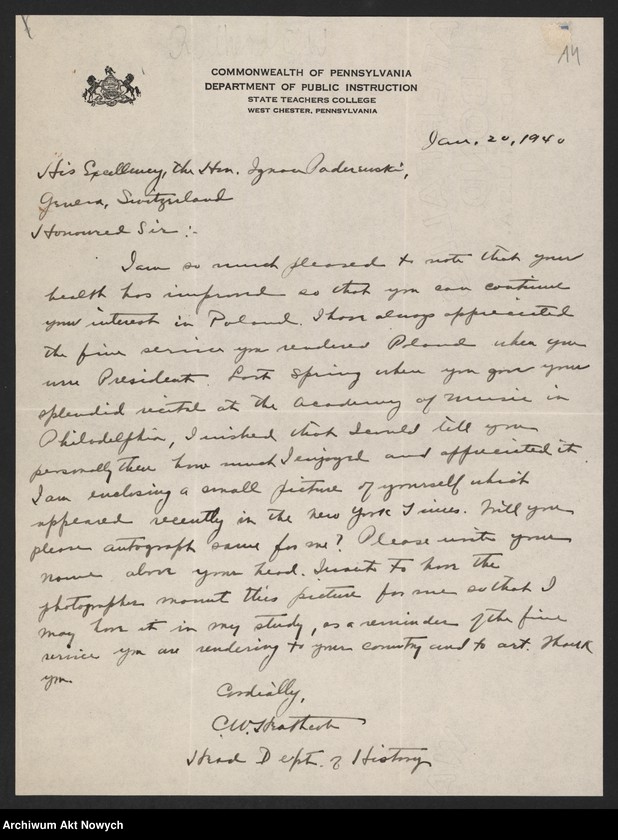 14
COMMONWEALTH OF PENNSYLVANIA
DEPARTMENT OF PUBLIC INSTRUCTION
STATE TEACHERS COLLEGE
WEST CHESTER, PENNSYLVANIA
Jan. 20, 1940
His Excellency, the Hon. Ignace Paderewski,
Geneva, Switzerland
Honoured Sir:-
I am so much pleased to note that your
health has improved so that you can continue
your interest in Poland. I have always appreciated
the fine service you rendered Poland when you
were President. Last Spring when you gave your
splendid recital at the Academy of Music in
Philadelphia, I wished that I could tell you
personally there how much I enjoyed and appreciated it.
I am enclosing a small picture of yourself which
appeared recently in the New York Times. Will you
please autograph same for me? Please write your
name above your head. I wish to have the
photographer mount this picture for me so that I
may have it in my study, as a reminder of the fine
service you are rendering to your country and to art. Thank
you.
Cordially,
C.W. Heathcote
Head Dept. of History
Archiwum Akt Nowych